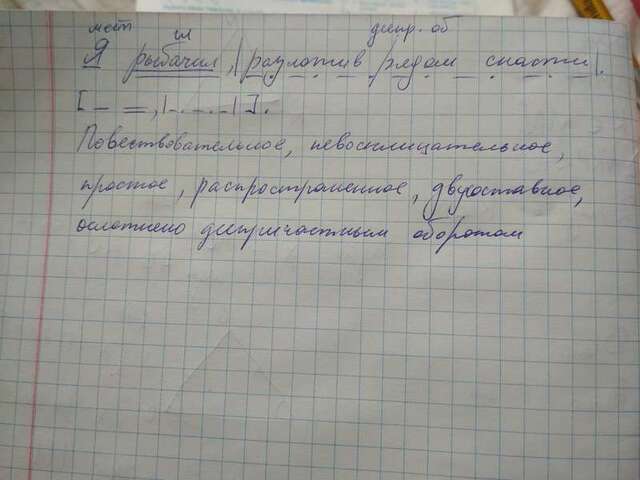 мест гл деепр. об
Я рыбачил, |разложив рядом снасти|.
[— =, |_._._|].
Повествовательное, невосклицательное,
простое, распространенное, двусоставное,
осложнено деепричастным оборотом